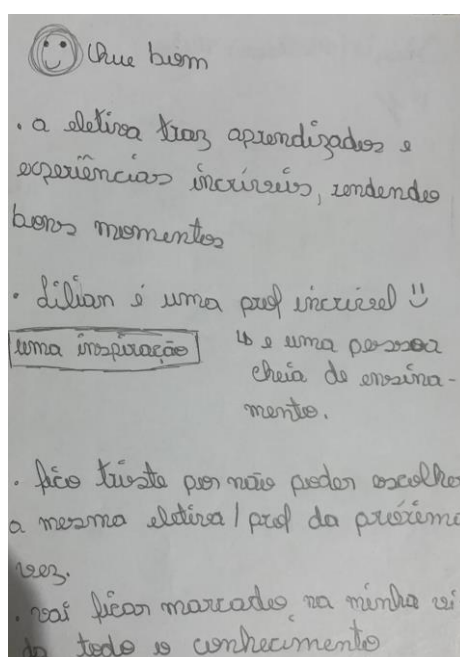 Que bom
. a eletiva traz aprendizados e
experiências incríveis, rendendo
bons momentos
. Lilian é uma prof incrível
uma inspiração
↳ e uma pessoa
cheia de ensina-
mento.
. fico triste por não poder escolher
a mesma eletiva / prof da próxima
vez.
. vai ficar marcado na minha vi
da todo o conhecimento